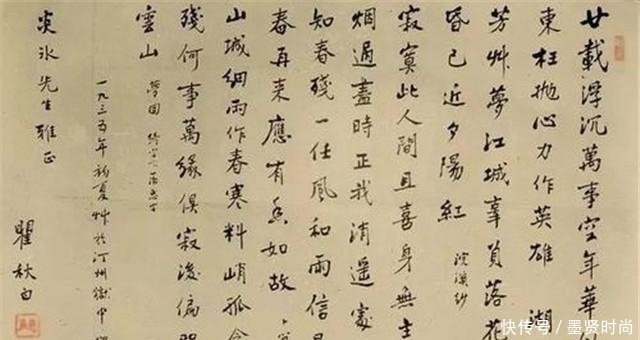 廿載浮沉萬事空年華
東枉抛心力作英雄 湖
芳艸夢江城辜負落花
昏已近夕陽紅 浣溪紗
寂寞此人間且喜身無主
烟過盡時正我消遥處
知春殘一任風和雨信是
春再来應有香如故
山城細雨作春寒料峭孤衾
殘何事萬緣俱寂後偏
雲山 夢回
一九三五年初夏艸於汀州獄中
炎冰先生雅正
瞿秋白
快传号/墨贤时尚